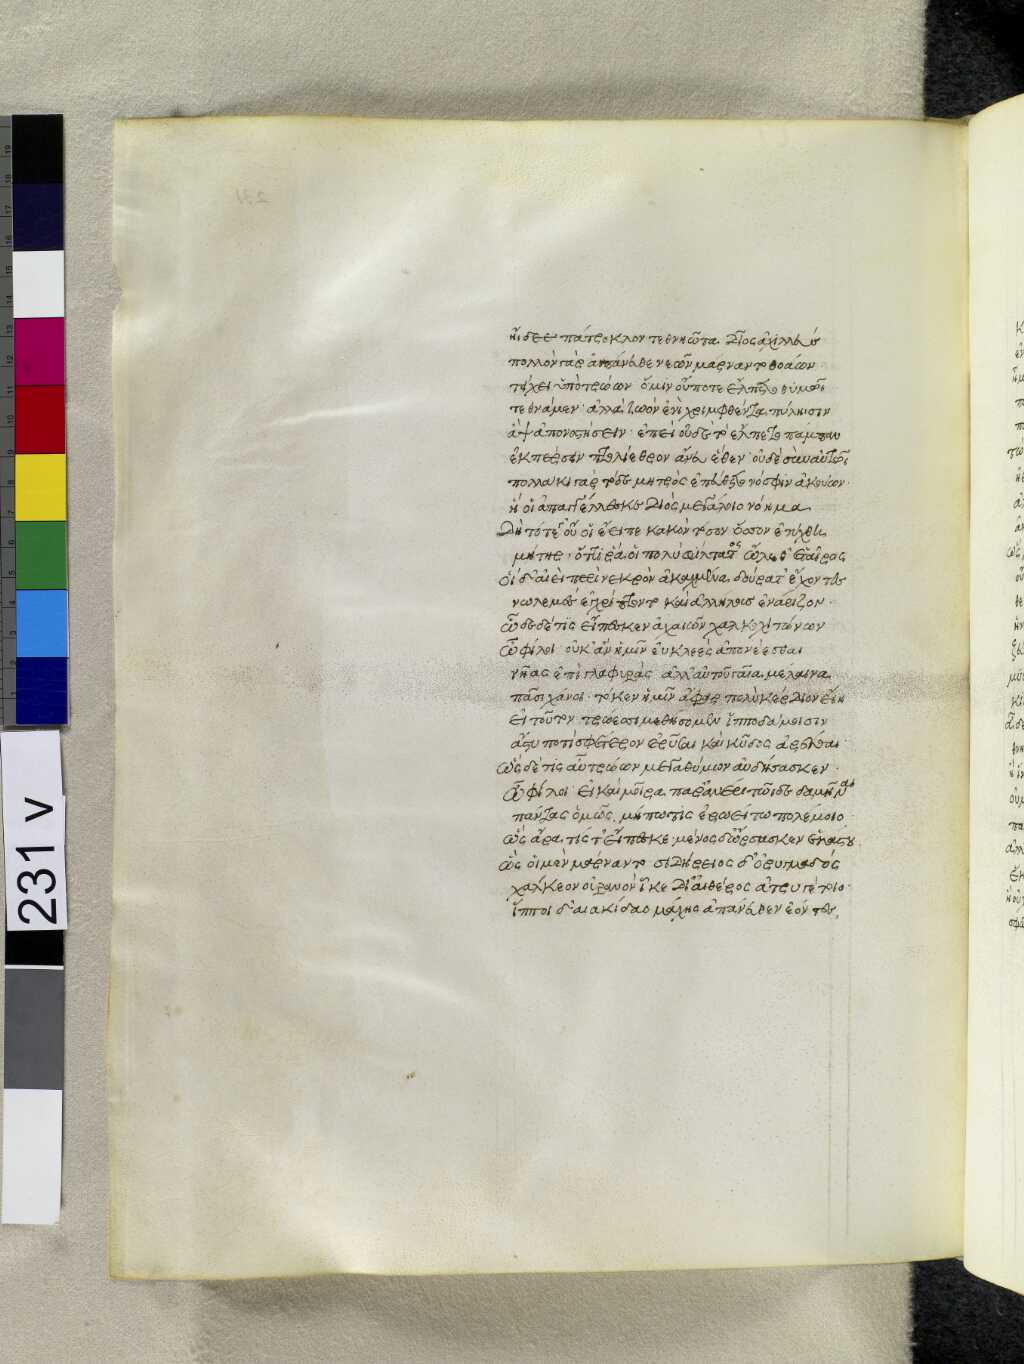 ᾔδεε πάτροκλον τεθνηῶτα δῖος ἀχιλλεύς
πολλὸν γὰρ ἀπάνευθε νεῶν μάρναντο θοάων
τείχει ὕπο τρώων· ὅ μιν οὔποτε ἔλπετο θυμῶι
τεθνάμεν· ἀλλὰ ζωὸν ἐνὶ χριμφθέντα πύλῃσιν
ἂψ ἀπονοστήσειν· ἐπεὶ οὐδὲ τὸ ἔλπετο πάμπαν
ἐκπέρσειν πτολίεθρον ἄνευ ἕθεν· οὐδὲ σὺν αὐτῶι
πολλάκι γὰρ τόδε μητρὸς ἐπεύθετο νόσφιν ἀκούων·
ἥ οἱ ἀπαγγέλλεσκε διὸς μεγάλοιο νόημα
δὴ τότε γ' οὔ οἱ ἔειπε κακὸν τόσον ὅσσον ἐτύχθη
μήτηρ· ὅττι ῥά οἱ πολὺ φίλτατος ὤλεθ' ἑταῖρος
οἱ δ' αἰεὶ περὶ νεκρὸν ἀκαχμένα δούρατ' ἔχοντες
νωλεμὲς ἐγχρίμπτοντο καὶ ἀλλήλους ἐνάριζον·
ὧδε δέ τις εἴπεσκεν ἀχαιῶν χαλκοχιτώνων
ὦ φίλοι οὐκ ἂν ἡμῖν ἐυκλεὲς ἀπονέεσθαι
νῆας ἐπὶ γλαφυράς· ἀλλ' αὐτοῦ γαῖα μέλαινα
πᾶσι χάνοι· τό κεν ἡμῖν ἄφαρ πολὺ κέρδιον εἴη
εἰ τοῦτον τρώεσσι μεθήσομεν ἱπποδάμοισιν
ἄστυ ποτὶ σφέτερον ἐρῦσαι καὶ κῦδος ἀρέσθαι·
ὣς δέ τις αὖ τρώων μεγαθύμων αὐδήσασκεν·
ὦ φίλοι· εἰ καὶ μοῖρα παρ' ἀνέρι τῶιδε δαμῆναι
πάντας ὁμῶς, μήπω τις ἐρωείτω πολέμοιο·
ὣς ἄρα τίς τ' εἴπεσκε· μένος δ' ὤρσασκεν ἑκάστου
ὣς οἱ μὲν μάρναντο σιδήρειος δ' ὀρυμαγδός
χάλκεον οὐρανὸν ἷκε δι' αἰθέρος ἀτρυγέτοιο·
ἵπποι δ' αἰακίδαο μάχης ἀπάνευθεν ἐόντες,
231 v